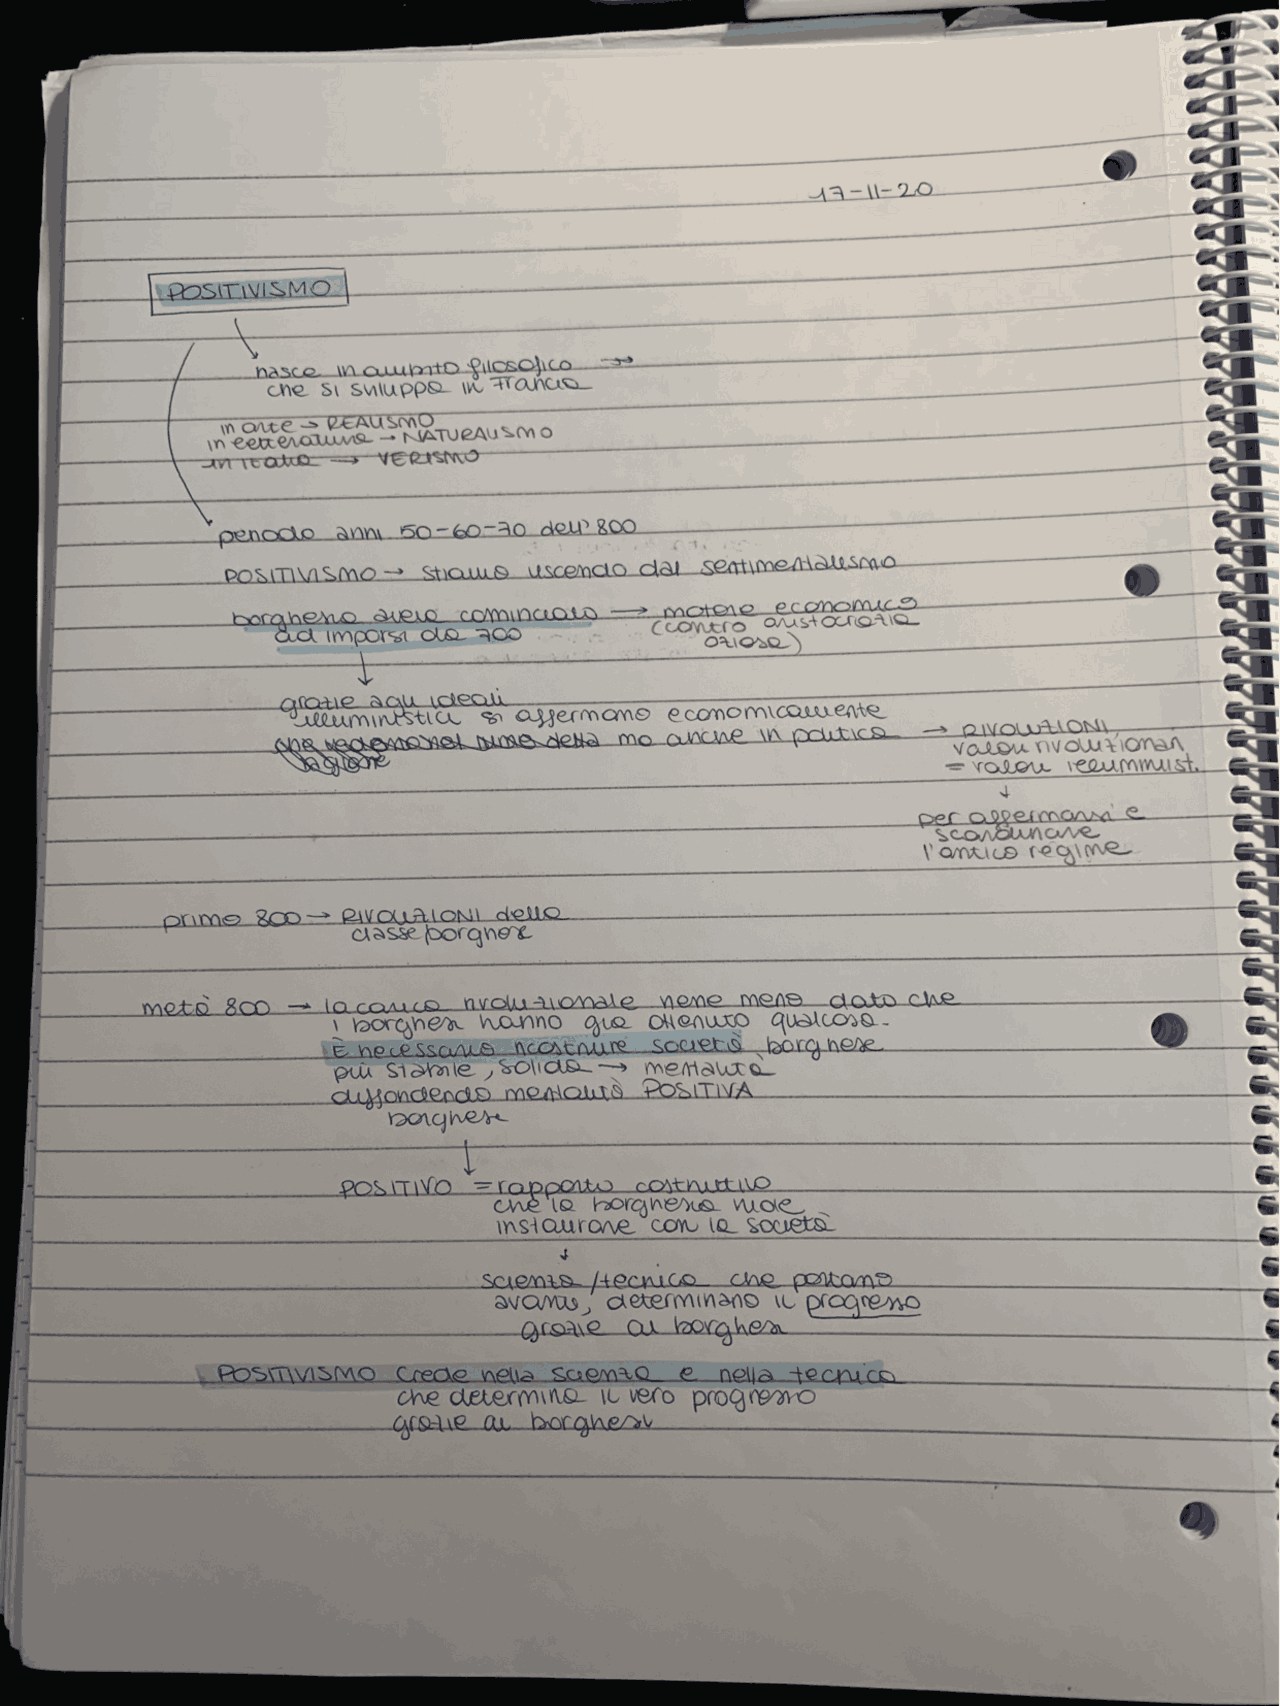 17-11-20
POSITIVISMO
nasce in ambito filosofico →
che si sviluppa in Francia
in arte → REALISMO
in letteratura → NATURALISMO
in Italia → VERISMO
periodo anni 50-60-70 dell'800
POSITIVISMO → stiamo uscendo dal sentimentalismo
borghesia aveva cominciato → motore economico
ad imporsi da 700 (contro aristocrazia
oziosa)
grazie agli ideali
illuministici si affermano economicamente
ma anche in politica → RIVOLUZIONI,
valori rivoluzionari
= valori illuminist.
↓
per affermarsi e
scardinare
l'antico regime
primo 800 → RIVOLUZIONI della
classe borghese
metà 800 → la carica rivoluzionale viene meno dato che
i borghesi hanno già ottenuto qualcosa.
È necessario ricostruire società borghese
più stabile, solida → mentalità
diffondendo mentalità POSITIVA
borghese
↓
POSITIVO = rapporto costruttivo
che la borghesia vuole
instaurare con la società
↓
scienza/tecnica che portano
avanti, determinano il progresso
grazie ai borghesi
POSITIVISMO crede nella scienza e nella tecnica
che determina il vero progresso
grazie ai borghesi